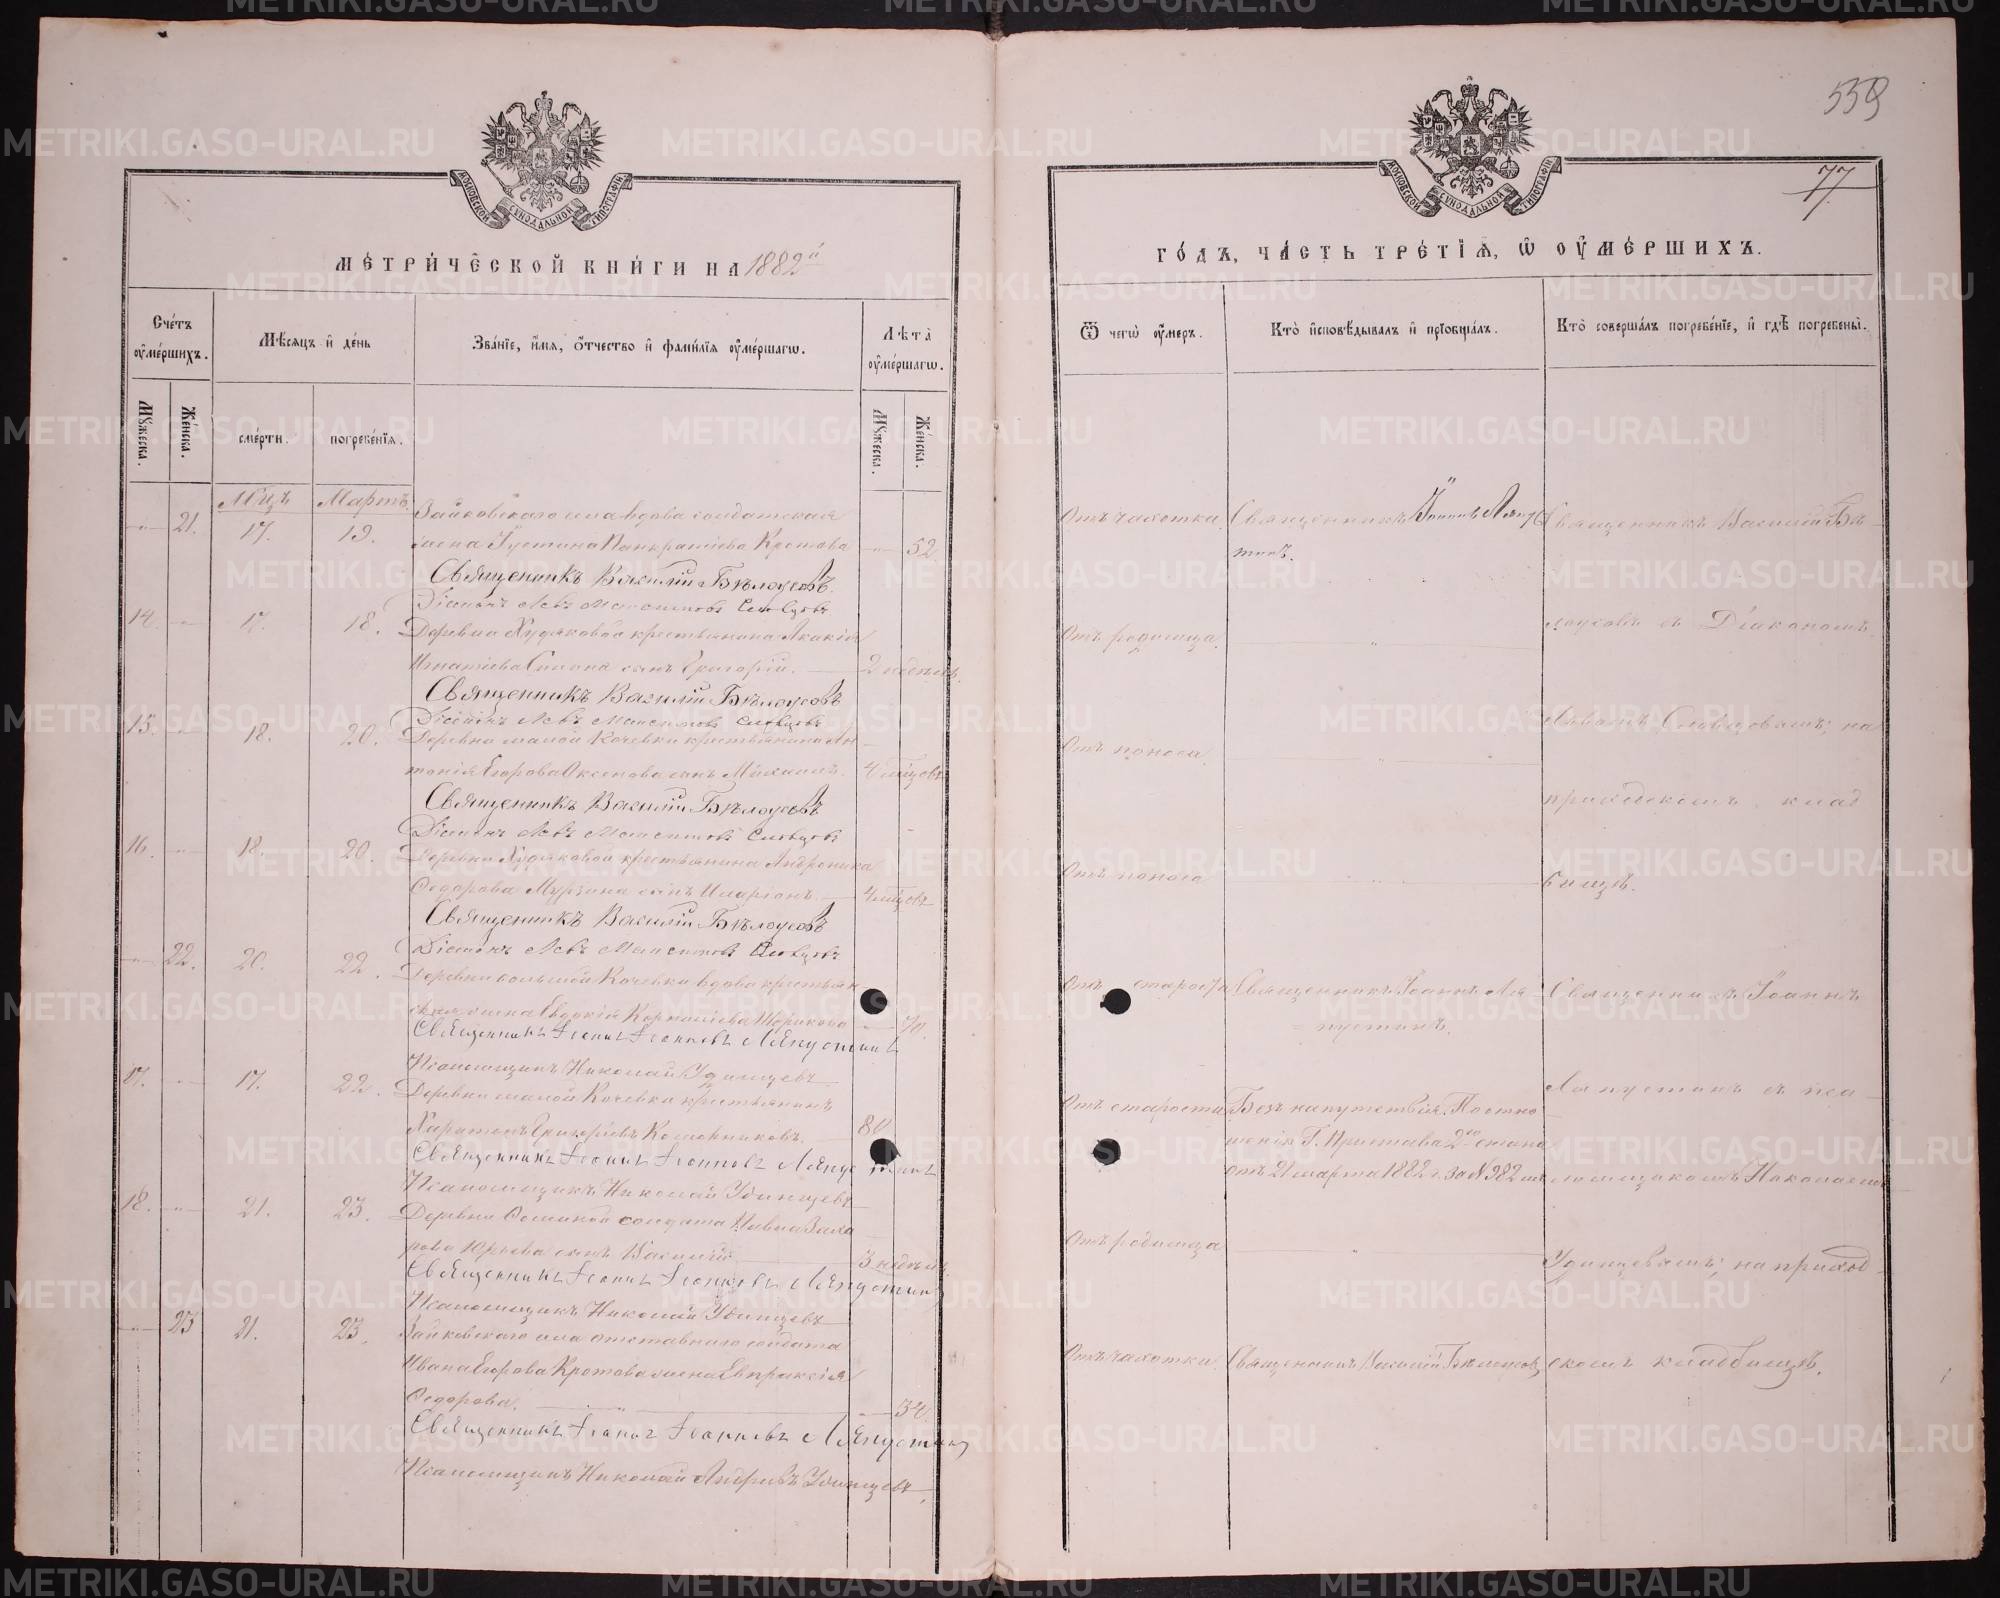 559
77
МОСКОВСКОЙ СѴНОДАЛЬНОЙ ТИПОГРАФІИ
МОСКОВСКОЙ СѴНОДАЛЬНОЙ ТИПОГРАФІИ
МЕТРИЧЕСКОЙ КНИГИ НА 1882й
ГОДЪ, ЧАСТЬ ТРЕТІЯ, Ѡ ОУМЕРШИХЪ.
Счетъ оумершихъ.
Мѣсяцъ и день
Званіе, имя, отчество и фамилія оумершагѡ.
Лѣта оумершагѡ.
Ѿ чегѡ оумеръ.
Кто исповѣдывалъ и пріобщалъ.
Кто совершалъ погребеніе, и гдѣ погребены.
Мужеска.
Женска.
смерти.
погребенія.
Мужеска.
Женска.
Мцъ Мартъ
21. 17. 19. Зайковскаго села вдова солдатская
жена Іустина Панкратіева Кротова 52
Священникъ Василій Бѣлоусовъ
Діаконъ Левъ Максимовъ Словцовъ
14. 17. 18. Деревни Худяковой крестьянина Акакія
Игнатіева сынъ Григорій. 2 недѣль.
Священникъ Василій Бѣлоусовъ
Діаконъ Левъ Максимовъ Словцовъ
15. 18. 20. Деревни малой Кочевки крестьянина Ан-
тонія Егорова Аксенова сынъ Михаилъ. 4 мцовъ
Священникъ Василій Бѣлоусовъ
Діаконъ Левъ Максимовъ Словцовъ
16. 18. 20. Деревни Худяковой крестьянина Андроника
Ѳедорова Мурзина сынъ Иларіонъ. 4 мцовъ
Священникъ Василій Бѣлоусовъ
Діаконъ Левъ Максимовъ Словцовъ
22. 20. 22. Деревни большой Кочевки вдова крестьян-
ская жена Евдокія Корнилиева 70.
Священникъ Іоаннъ Іоанновъ Ляпустинъ
Псаломщикъ Николай Удинцевъ
17. 17. 22. Деревни малой Кочевки крестьянинъ
Харитонъ Григорьевъ 80
Священникъ Іоаннъ Іоанновъ Ляпустинъ
Псаломщикъ Николай Удинцевъ
18. 21. 23. Деревни солдата Павла Заха-
рова Юрьева сынъ Василій 3 недѣль
Священникъ Іоаннъ Іоанновъ Ляпустинъ
Псаломщикъ Николай Удинцевъ
23 21. 23. Зайковскаго села отставнаго солдата
Ивана Егорова Кротова жена Евпраксія
Ѳедорова. 34.
Священникъ Іоаннъ Іоанновъ Ляпустинъ
Псаломщикъ Николай Андреевъ Удинцевъ.
Отъ чахотки.
Отъ родимца.
Отъ поноса.
Отъ поноса
Отъ старости
Отъ старости
Отъ родимца
Отъ чахотки.
Священникъ Іоаннъ Ляпу-
стинъ.
Священникъ Іоаннъ Ля-
пустинъ.
Безъ напутствія. По отно-
шенію Г. Пристава 2го стана
отъ 21 марта 1882 г. за № 982 мъ
Священникъ Василій Бѣлоусовъ
Священникъ Василій Бѣ-
лоусовъ съ Діакономъ
Львомъ Словцовымъ; на
приходскомъ клад-
бищѣ.
Священникъ Іоаннъ
Ляпустинъ съ пса-
ломщикомъ Николаемъ
Удинцевымъ; на приход-
скомъ кладбищѣ.
METRIKI.GASO-URAL.RU